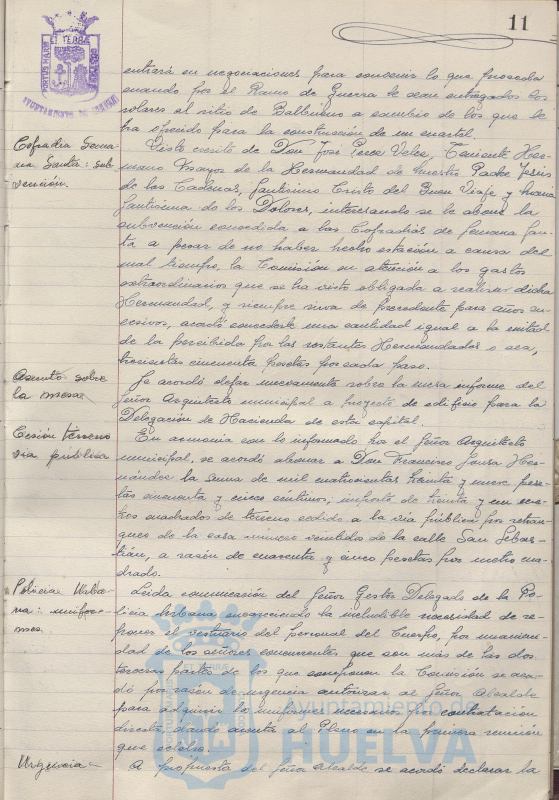 11
PORTUS MARIS
ET TERRÆ
CUSTODIA
AYUNTAMIENTO DE HUELVA
entrará en negociaciones para convenir lo que proceda
cuando por el Ramo de Guerra le sean entregados los
solares al sitio de Balbueno a cambio de los que le
ha ofrecido para la construcción de un cuartel.
Cofradia Sema-
na Santa: sub-
vención.
Visto escrito de Don José Pérez Vélez, Teniente Her-
mano Mayor de la Hermandad de Nuestro Padre Jesús
de las Cadenas, Santísimo Cristo del Buen Viaje y María
Santísima de los Dolores, interesando se le abone la
subvención concedida a las Cofradías de Semana San-
ta a pesar de no haber hecho estación a causa del
mal tiempo, la Comisión en atención a los gastos
extraordinarios que se ha visto obligada a realizar dicha
Hermandad, y siempre sirva de precedente para años su-
cesivos, acordó concederle una cantidad igual a la mitad
de la percibida por las restantes Hermandades o sea,
trescientas cincuenta pesetas por cada paso.
Asunto sobre
la mesa
Se acordó dejar nuevamente sobre la mesa informe del
Señor Arquitecto municipal a proyecto de edificio para la
Delegación de Hacienda de esta capital.
Cesión terreno
via pública
En armonía con lo informado por el Señor Arquitecto
municipal, se acordó abonar a Don Francisco Her-
nández la suma de mil cuatrocientas treinta y nueve pese-
tas cincuenta y cinco céntimos, importe de treinta y un me-
tros cuadrados de terreno cedido a la vía pública por retran-
queo de la casa número veintidos de la calle San Sebas-
tián, a razón de cuarenta y cinco pesetas por metro cua-
drado.
Policia Urba-
na: unifor-
mes
Leida comunicación del Señor Gestor Delegado de la Po-
licía Urbana encareciendo la ineludible necesidad de re-
poner el vestuario del personal del Cuerpo, por unanimi-
dad de los señores concurrentes que son más de las dos
terceras partes de los que componen la Comisión se acor-
dó por razón de urgencia autorizar al Señor Alcalde
para adquirir los uniformes necesarios, por contratación
directa, dando cuenta al Pleno en la primera reunión
que celebre.
Urgencia
A propuesta del Señor Alcalde se acordó declarar la
Ayuntamiento de
HUELVA